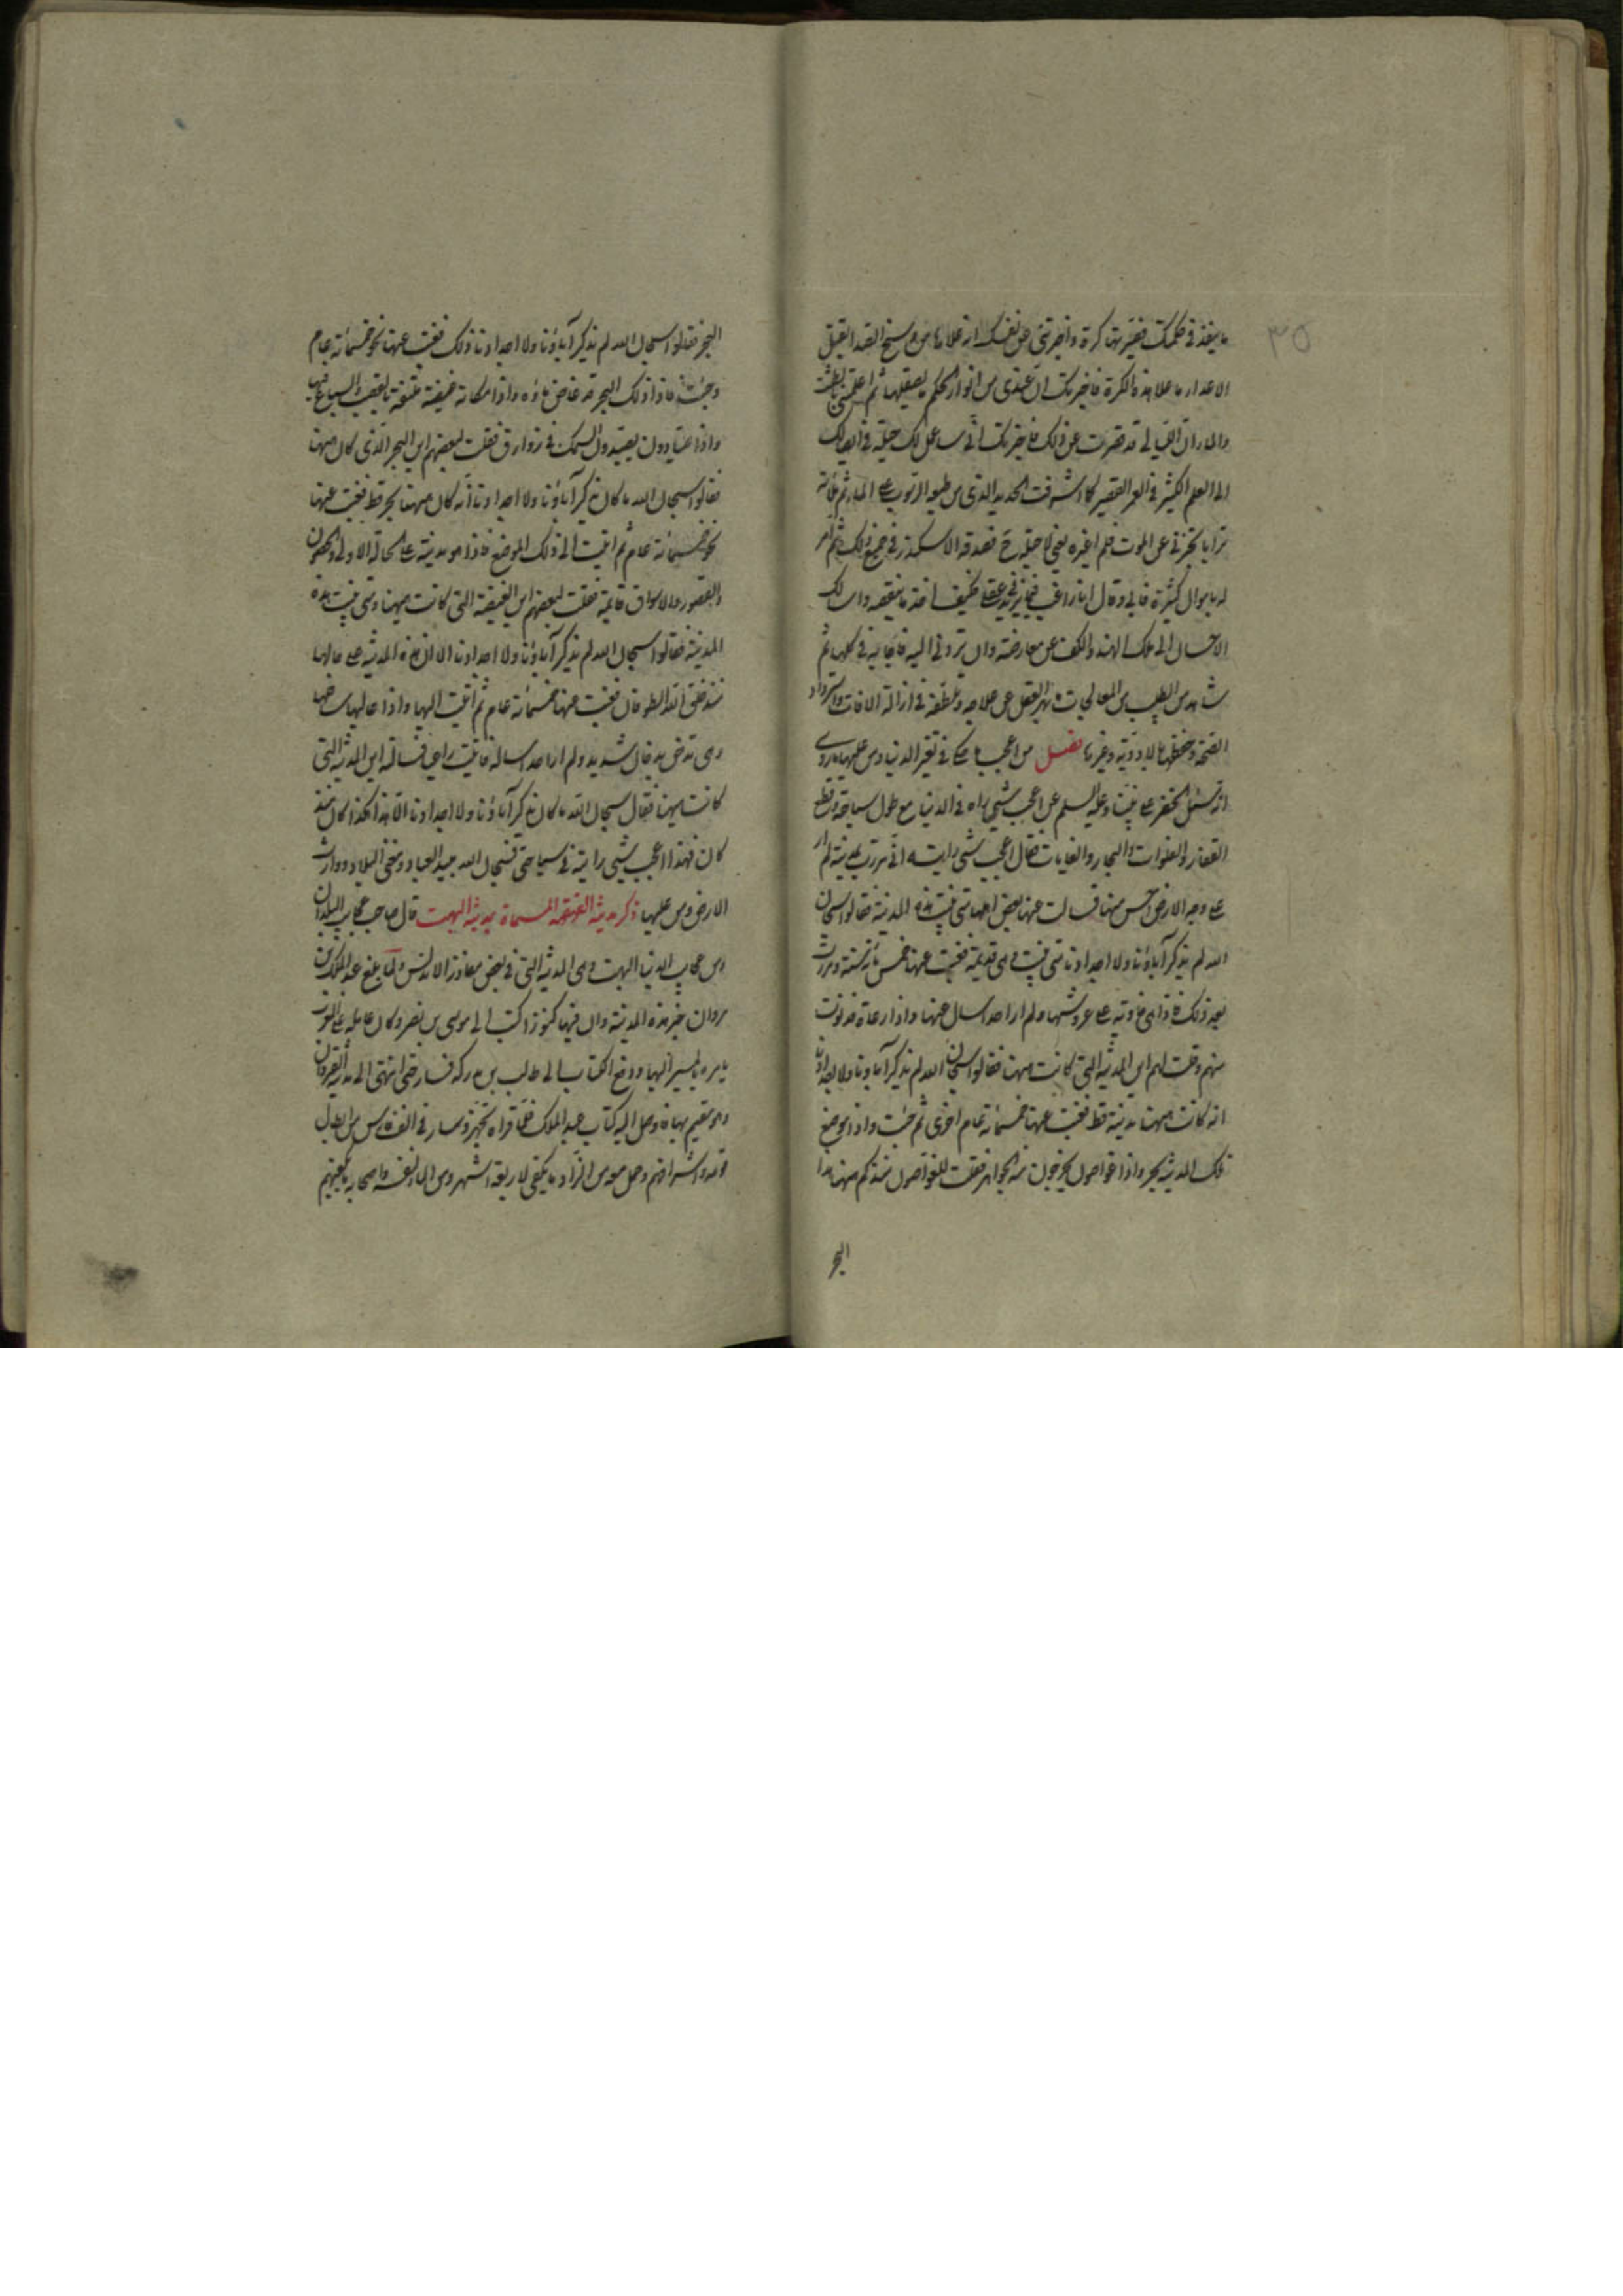 ٣٥
ما ينفذ في حكمك فغيرتها كرة واخبرتني عن نفسك انه علاها من وسخ الصدا لقتل
الاعداء ما علا هذه الكرة فاخبرتك ان عندي من انوار الحكم ما يصقلها ثم اعلمتني بالطشت
والماء ان الليالي قد قصرت عن ذلك فاخبرتك اني ساعمل لك حيلة في ايصالك
الى العلم الكثير في العمر القصير كما شرفت الحديد الذي من طبعه الرسوب على الماء ثم ملأته
ترابا تخبرني عن الموت فلم اغيره يعني لا حيلة فيه فصدقه الاسكندر في جميع ذلك ثم امر
له باموال كثيرة فابى وقال انا راغب فيما يزيد عقلي فكيف اخذ ما ينقصه واسالك
الاحسان الى ملك الهند والكف عن معارضته وان تردني اليه فاجابه في كلها ثم
شاهد من الطبيب من المعالجات ما يبهر العقل من علاجه وتلطفه في ازالة الافات واسترداد
الصحة وحفظها بالادوية وغيرها فصل من اعجب ما حكي في تغير الدنيا ومن عليها ما روي
انه سئل الخضر على نبينا وعليه السلم عن اعجب شيئ راه في الدنيا مع طول سياحته وقطع
القفار والفلوات والبحار والغابات فقال اعجب شيئ رايته اني مررت بمدينة لم ار
على وجه الارض احسن منها فسالت عنها بعض اهلها متى بنيت هذه المدينة فقالوا سبحان
الله لم يذكر آباؤنا ولا اجدادنا متى بنيت وهي قديمة فغبت عنها خمس مائة سنة ومررت
بعد ذلك فاذا هي خاوية على عروشها ولم ار احدا اسال عنها واذا رعاة فدنوت
منهم وقلت لهم اين المدينة التي كانت ههنا فقالوا سبحان الله لم يذكر آباؤنا ولا اجدادنا
انه كانت ههنا مدينة قط فغبت عنها خمسمائة عام اخرى ثم جئت واذا موضع
تلك المدينة بحر واذا غواصون يخرجون منه الجواهر فقلت للغواصين منذ كم ههنا هذا
البحر
البحر فقالوا سبحان الله لم يذكر آباؤنا ولا اجدادنا ذلك فغبت عنها نحو خمسمائة عام
وجئت فاذا ذلك البحر قد غاض ماؤه واذا مكانه غيضة ملتفة بالقصب والسباع فيها
واذا صيادون يصيدون السمك في زوارق فقلت لبعضهم اين البحر الذي كان ههنا
فقالوا سبحان الله ما كان يذكر آباؤنا ولا اجدادنا انه كان ههنا بحر قط فغبت عنها
نحو خمسمائة عام ثم اتيت الى ذلك الموضع فاذا هو مدينة على الحالة الاولى والحصون
والقصور والاسواق قائمة فقلت لبعضهم اين الغيضة التي كانت ههنا ومتى بنيت هذه
المدينة فقالوا سبحان الله لم يذكر آباؤنا ولا اجدادنا الا ان هذه المدينة على حالها
منذ خلق الله الطوفان فغبت عنها خمسمائة عام ثم اتيت اليها واذا عاليها سافلها
وهي تدخن بدخان شديد ولم ار احدا اساله فاتيت راعي فسالته اين المدينة التي
كانت ههنا فقال سبحان الله ما كان يذكر آباؤنا ولا اجدادنا الا هذا هكذا كان منذ
كان فهذا اعجب شيئ رايته في سياحتي فسبحان الله مبيد العباد ومفني البلاد ووارث
الارض ومن عليها ذكر مدينة العتيقة المسماة بمدينة البهت قال صاحب عجايب البلدان
ومن عجايب الدنيا البهت وهي المدينة التي في بعض مفاوز الاندلس ولما بلغ عبد الملك بن
مروان خبر هذه المدينة وان فيها كنوزا كتب الى موسى بن نصر وكان عامله على المغرب
يامره بالمسير اليها ودفع الكتاب الى طالب بن مدركة فسار حتى انتهى الى مدينة القيروان
وهو مقيم بها فاوصل اليه كتاب عبد الملك فلما قراه تجهز وسار في الف فارس من ابطال
قومه واشرافهم وحمل معه من الزاد ما يكفي لاربعة اشهر ومن الماء لنفسه واصحابه ما يكفيهم